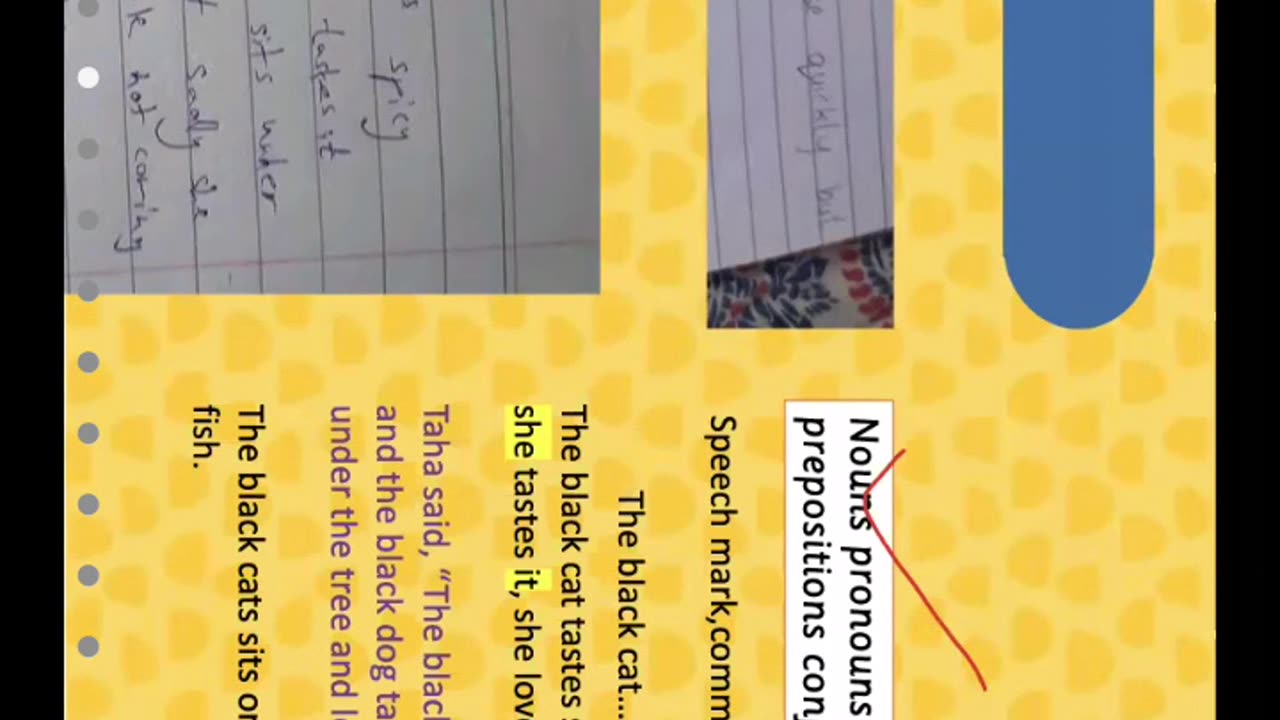 quickly but
spicy
tastes it
sits under
sadly she
not caring
Nouns pronouns
prepositions con
Speech mark,comm
The black cat...
The black cat tastes
she tastes it, she lov
Taha said, “The blac
and the black dog ta
under the tree and l
The black cats sits o
fish.